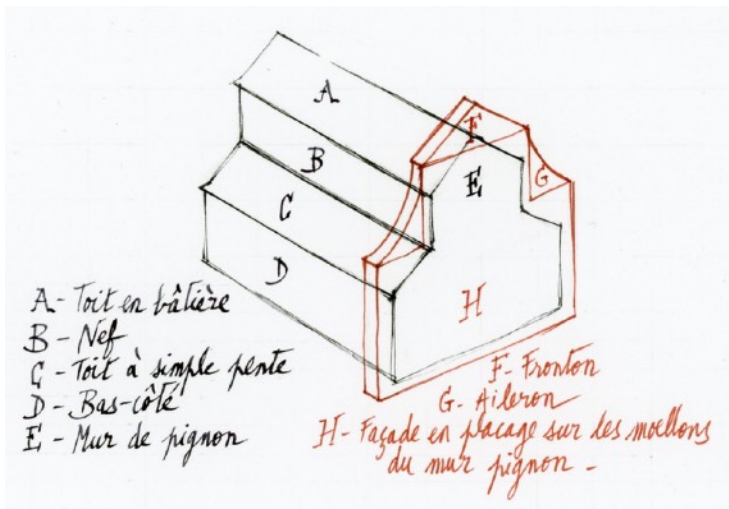 A
B
C
D
E
F
G
H
A - Toit en bâtière
B - Nef
C - Toit à simple pente
D - Bas-côté
E - Mur de pignon
F - Fronton
G - Aileron
H - Façade en placage sur les moellons
du mur pignon -